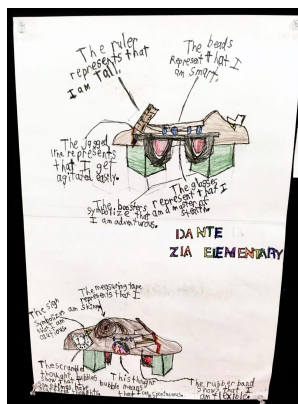 The ruler
represents that
I am Tall.
The beads
Represent that I
am smart.
The jagged
line represents
that I get
agitated easily.
The glasses
represent that I
am a master of
stealth.
The boosters
symbolize that
I am adventurous.
DANTE
ZIA ELEMENTARY
The sign
Symbolizes
that I am
cautious.
The measuring tape
represents that I
am skinny.
The scrambled
thought bubbles
show that I
This thought
bubble means
that I am spontaneous.
The rubber band
shows that I
am flexible.